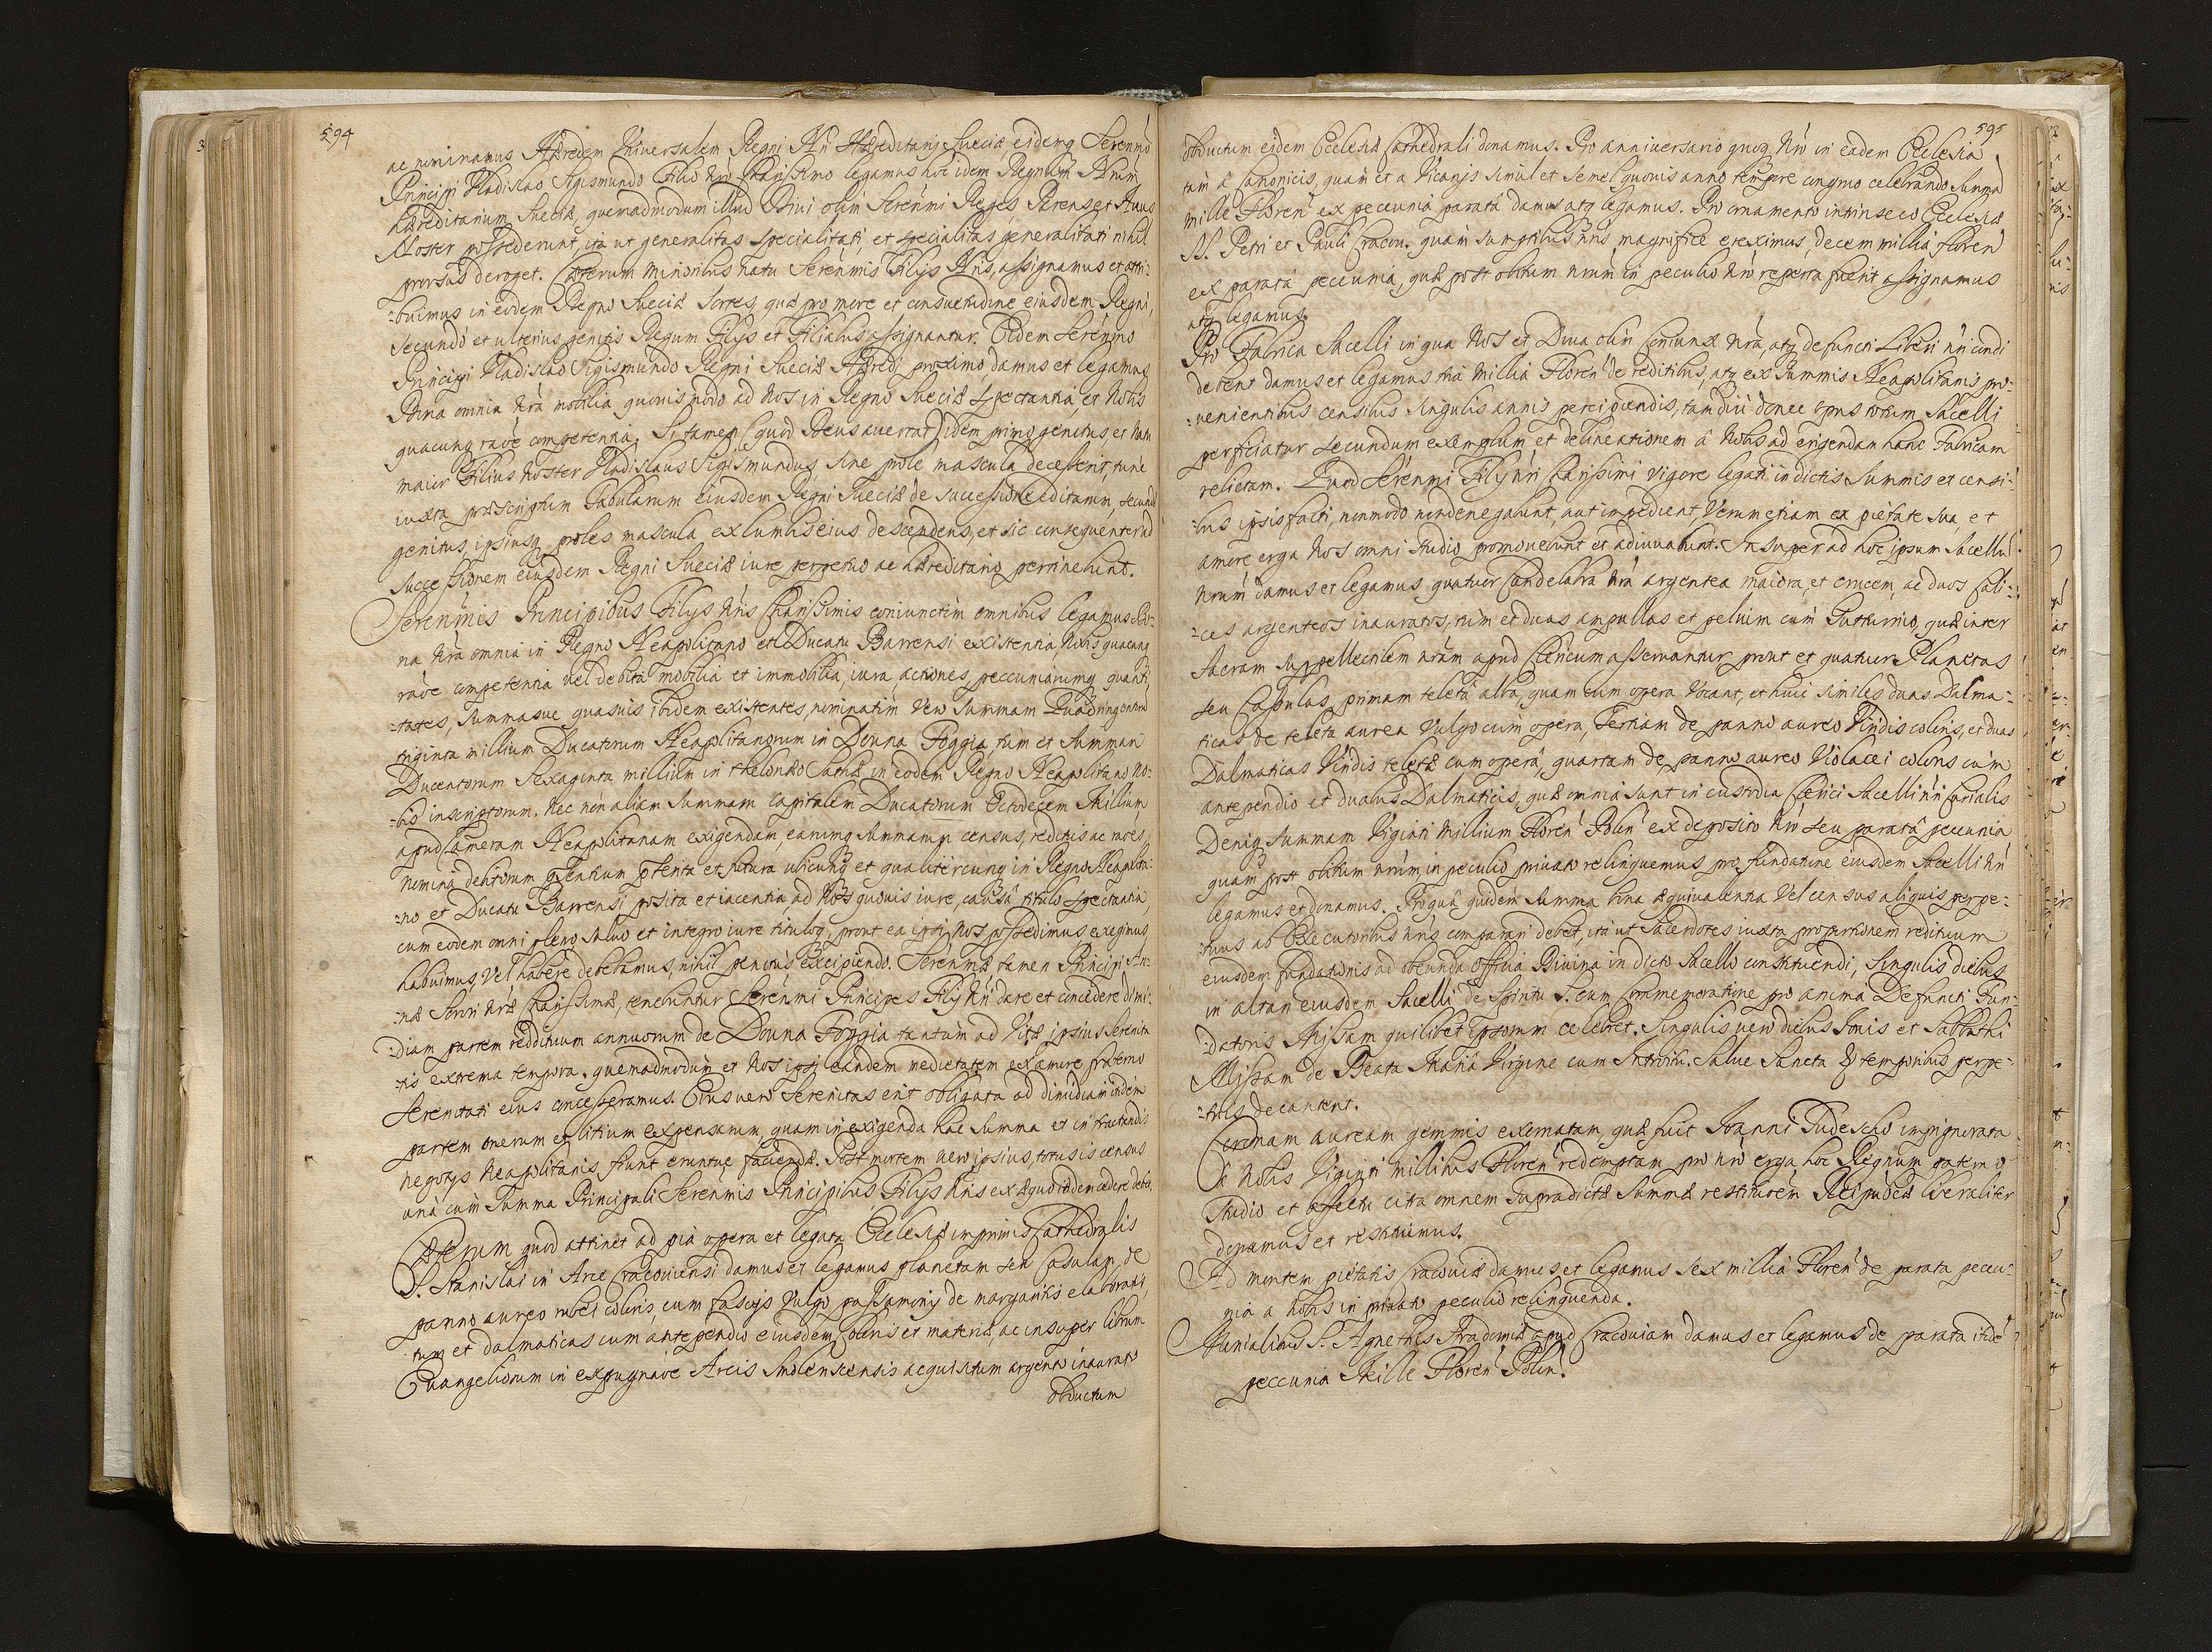 594
ac nominamus Hæredem Universalem Regni Nri Hæreditarij Sueciæ, eidemq Serenmo
Principi Vladislao Sigismundo Filio Nro Charissimo legamus hoc idem Regnum Nrum
hæreditarium Sueciæ, quemadmodum illud Divi olim Serenmi Reges, Parens et Avus
Noster possederunt, ita ut generalitas specialitati, et specialitas generalitati nihil
prorsus deroget. Cæterum minoribus natu Serenmis Filijs Nris, assignamus et attri-
-buimus in eodem Regno Sueciæ Sortes, quæ pro more et consuetudine eiusdem Regni,
secundo et ulterius genitis Regum Filijs et Filiabus assignantur. Eidem Serenmo
Principi Vladislao Sigismundo Regni Sueciæ Hæredi proximo damus et legamus
Bona omnia Nra mobilia quovis modo ad Nos in Regno Sueciæ spectantia, et Nobis
quacunq raoe competentia. Si tamen (quod Deus avertat) idem primogenitus et natu
maior Filius Noster Vladislaus Sigismundus, sine prole mascula decesserit, tunc
iuxta præscriptum tabularum eiusdem Regni Sueciæ de successione editarum, secundo
genitus, ipsiusq proles mascula ex lumbis eius descendens, et sic consequenter ad
successionem eiusdem Regni Sueciæ iure perpetuo ac hæreditario pertinebunt.
Serenmis Principibus Filijs Nris Charissimis coniunctim omnibus legamus Bo-
na Nra omnia in Regno Neapolitano et Ducatu Barrensi existentia, Nobis quacunq
raoe competentia vel debita mobilia et immobilia, iura, actiones, peccuniarumq quanti-
-tates, summasve quasuis ibidem existentes, nominatim vero summam Quadringentorum
triginta millium Ducatorum Neapolitanorum in Douna Foggia, tum et summam
Ducentorum sexaginta millium in theloneo Salis in eodem Regno Neapolitano No-
-bis inscriptorum. Nec non aliam summam capitalem Ducatorum Octodecem Millium
apud Cameram Neapolitanam exigendam, earumq summarum census, reditus ac raoes,
nomina debitorum psentium pterita et futura ubicunq et qualitercunq in Regno Neapolita-
-no et Ducatu Barrensi posita et iacentia, ad Nos quovis iure, causa titulo spectantia,
cum eodem omni pleno, salvo et integro iure tituloq, prout ea ipsi Nos possedimus exegimus
habuimus, vel habere debebamus, nihil penitus excipiendo. Serenmæ tamen Principi An-
-næ Sorori Nræ Charissimæ, tenebuntur Serenmi Principes Filij Nri dare et concedere dimi-
-diam partem redituum annuorum de Douna Foggia tantum ad vitæ ipsius Serenita-
-tis extrema tempora. quemadmodum et Nos ipsi eandem medietatem ex amore fraterno
Serenitati eius concesseramus. Eius vero Serenitas erit obligata ad dimidiam itidem
partem onerum et litium expensarum, quam in exigenda hac summa et in tractandis
negotijs Neapolitanis, fiunt eruntue faciendæ. Post mortem vero ipsius, totus is census
una cum Summa Principali Serenmis Principibus Filijs Nris ex æquo itidem cedere debet.
Cæterum quod attinet ad pia opera et legata Ecclesiæ imprimis Cathedralis
S. Stanislai in Arce Cracoviensi damus et legamus planetam seu Casulam, de
panno aureo rubei coloris, cum fascijs vulgo passamony de margaritis elaboratis,
tum et dalmaticas cum antependio eiusdem coloris et materiæ, ac insuper librum
Evangeliorum in expugnaoe Arcis Smolenscensis acquisitum argento inaurato
obductum
595
obductum eidem Ecclesiæ Cathedrali donamus. Pro anniversario quoq Nro in eadem Ecclesia
tam a Canonicis, quam et a Vicarijs simul et semel quovis anno tempore congruo celebrando summam
mille Floren ex peccunia parata damus atq legamus. Pro ornamento intrinseco Ecclesiæ
SS. Petri et Pauli Cracou. quam sumptibus nris magnifice ereximus, decem millia floren
ex parata peccunia, quæ post obitum nrum in peculio Nro reperta fuerit assignamus
atq legamus.
Pro Fabrica Sacelli in qua Nos et Diva olim Coniunx Nra, atq defuncti Liberi nri condi
debent damus et legamus tria Millia Floren de reditibus, atq ex summis Neapolitanis pro-
-venientibus censibus singulis annis percipiendis, tamdiu donec opus totum Sacelli
perficiatur secundum exemplum et delineationem a Nobis ad erigendam hanc Fabricam
relictam. Quod Serenmi Filij nri Charissimi vigore legati in dictis Summis et censi-
-bus ipsis facti, nonmodo non denegabunt, aut impedient, verum etiam ex pietate sua, et
amore erga Nos omni studio promovebunt et adiuvabunt. Insuper ad hoc ipsum Sacellu
nrum damus et legamus quatuor Candelabra nra argentea maiora, et crucem, ac duos Cali-
-ces argenteos inauratos, tum et duas ampullas et peluim cum Gutturnio, quæ inter
sacram suppellectilem nram apud Clericum asseruantur prout et quatuor Planetas
seu Casulas, primam teletæ alba, quam cum opera vocant, et huic similes duas Dalma-
ticas de teleta aurea vulgo cum opera, Tertiam de panno aureo Viridis coloris, et duas
Dalmaticas Viridis teletæ cum opera, quartam de panno aureo Violacei coloris cum
antependio et duabus Dalmaticis, quæ omnia sunt in custodia Clerici Sacelli nri Curialis
Deniq summam Viginti Millium Floren Polon ex deposito Nro seu parata peccunia
quam post obitum nrum, in peculio privato relinquemus pro fundatione eiusdem Sacelli Nri
legamus et donamus. Pro qua quidem summa bona æquivalentia vel census aliquis perpe-
-tuus ab Executoribus nris comparari debet, ita ut Sacerdotes iuxta proportionem redituum
eiusdem fundationis ad obeunda officia Divina in dicto Sacello constituendi, singulis diebus
in altari eiusdem Sacelli de Spiritu S. cum Commemoratione pro anima Defuncti Fun-
-datoris Missam quilibet ipsorum celebret. Singulis vero diebus Jovis et Sabbathi
Missam de Beata Maria Virgine cum Introitu. Salve Sancta &c temporibus perpe-
-tuis decantent.
Coronam auream gemmis exornatam, quæ fuit Joanni Tudescho impignorata
et nobis Viginti millibus Floren redemptam pro nro erga hoc Regnum paterno
studio et affectu citra omnem supradictæ summæ restitutioem Reipublicæ liberaliter
donamus et restituimus.
Ad montem pietatis Cracoviæ damus et legamus sex millia Floren de parata peccu-
nia a nobis in privato peculio relinquenda.
Monialibus S. Agnethis Stradomiæ apud Cracoviam damus et legamus de parata itide
peccunia Mille Floren Polon.